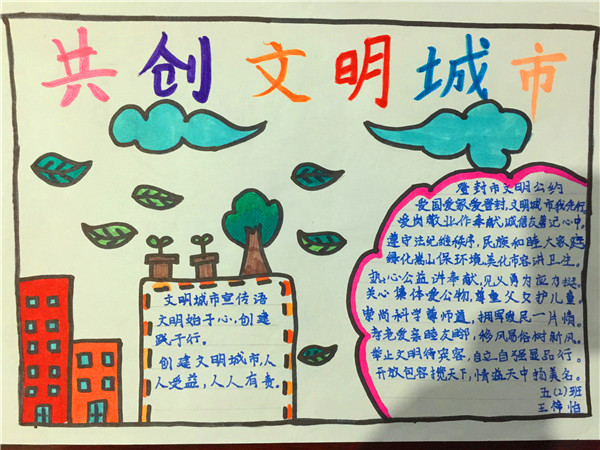 共创文明城市
文明城市宣传语
文明始于心,创建
践于行。
创建文明城市,人
人受益,人人有责。
登封市文明公约
爱国爱家爱登封,文明城市我先行
爱岗敬业作奉献,诚信友善记心中。
遵守法纪维秩序,民族和睦大家
绿化嵩山保环境,美化市容讲卫生。
热心公益讲奉献,见义勇为应力挺。
关心集体爱公物,尊重父女护儿童。
崇尚科学尊师道,拥军爱民一片情。
孝老爱亲睦友邻,移风易俗树新风。
举止文明待宾客,自立自强显品行。
开放包容揽天下,情益天中扬美名。
五(2)班
王